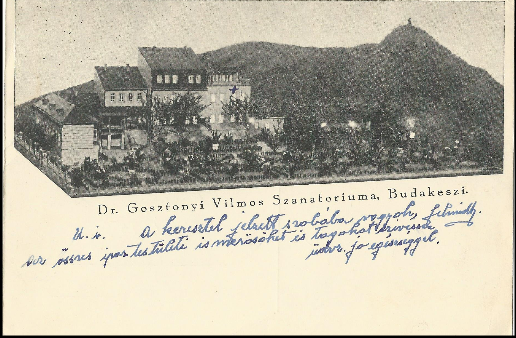 Dr. Gosztonyi Vilmos Szanatoriuma, Budakeszi.
U. i. A keresztel jelzett szobába vagyok,
az összes ipartestületi ismerősöket is tagokat
üdv. jó egészséggel.